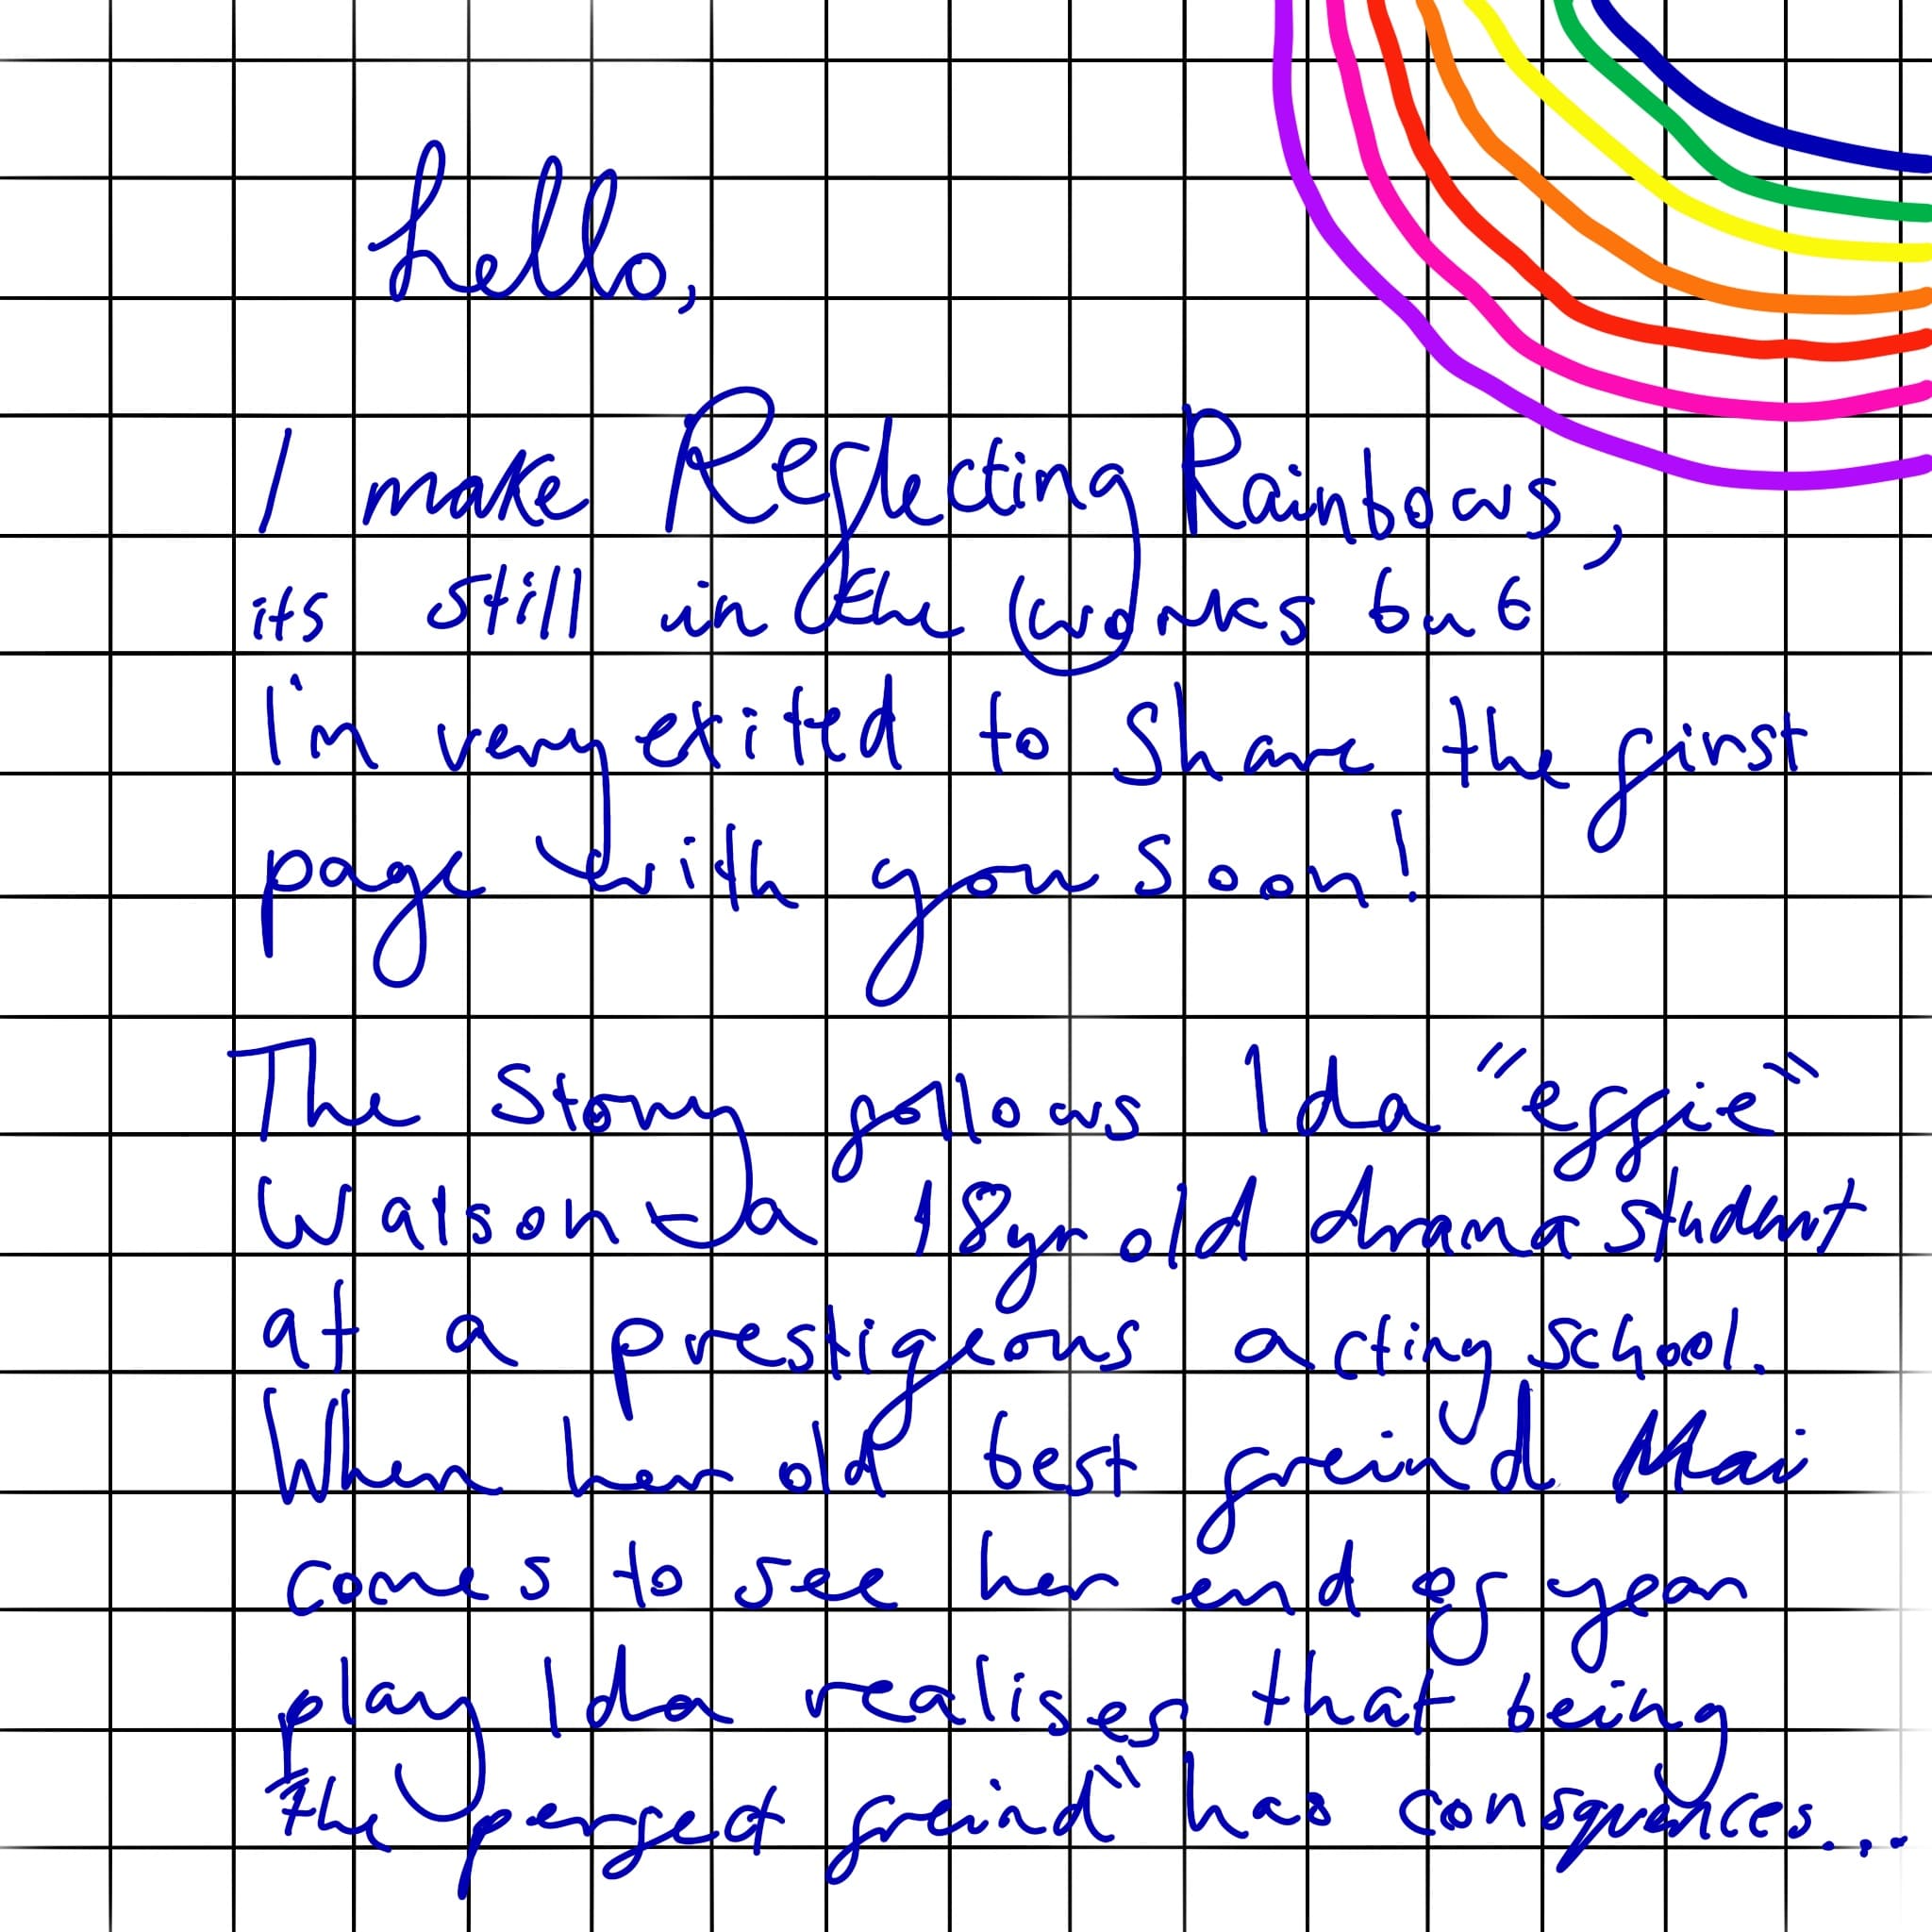 hello,
I make Reflecting Rainbows,
its still in the works but
I'm very exited to Share the first
page with you soon!
The story follows Ida "effie"
Watson - a 18yr old drama student
at a prestigeous acting school.
When her old best freind Mai
comes to see her end of year
play Ida realises that being
the "perfect freind" has consquences....